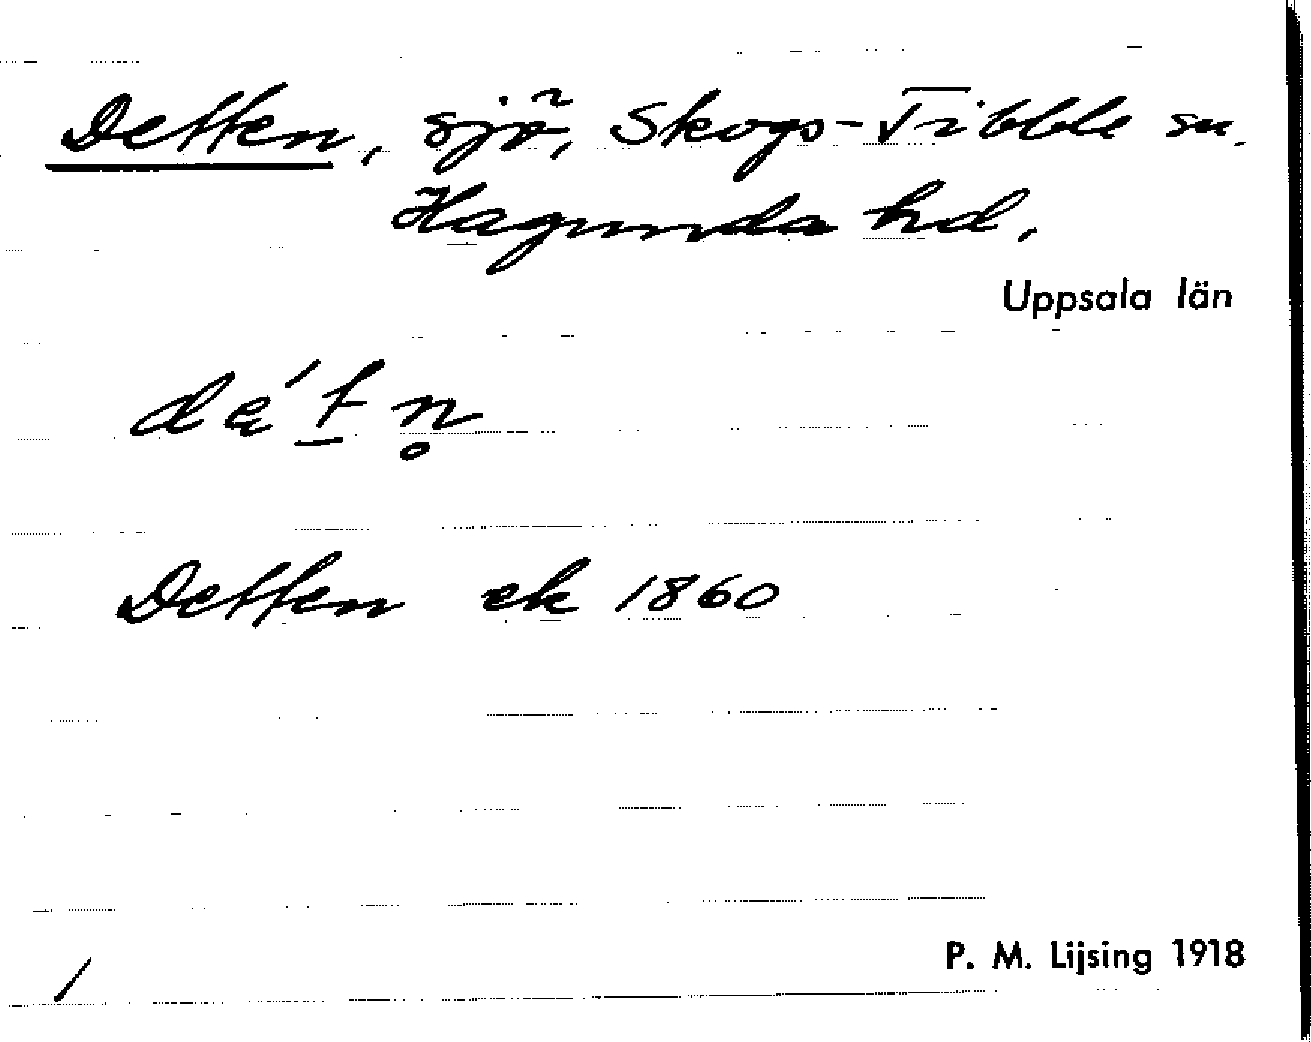 Detten, sjö, Skogs-Tibble sn.
Hagunda hd.
Uppsala län
dę́t̲n̥
Detten ek 1860
P. M. Lijsing 1918
/